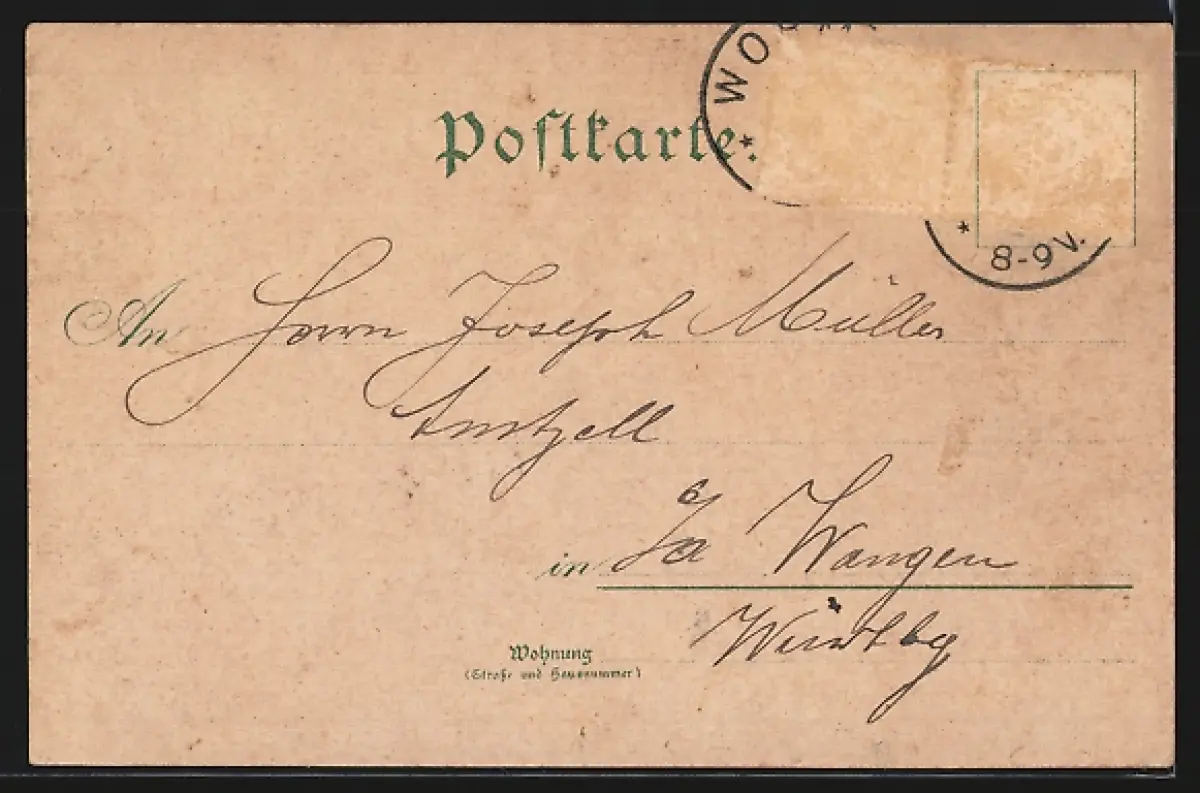 * WO
Postkarte.
* 8-9 V.
An Herrn Joseph Müller
Amtzell
in Wangen
Württbg
Wohnung
(Straße und Hausnummer)